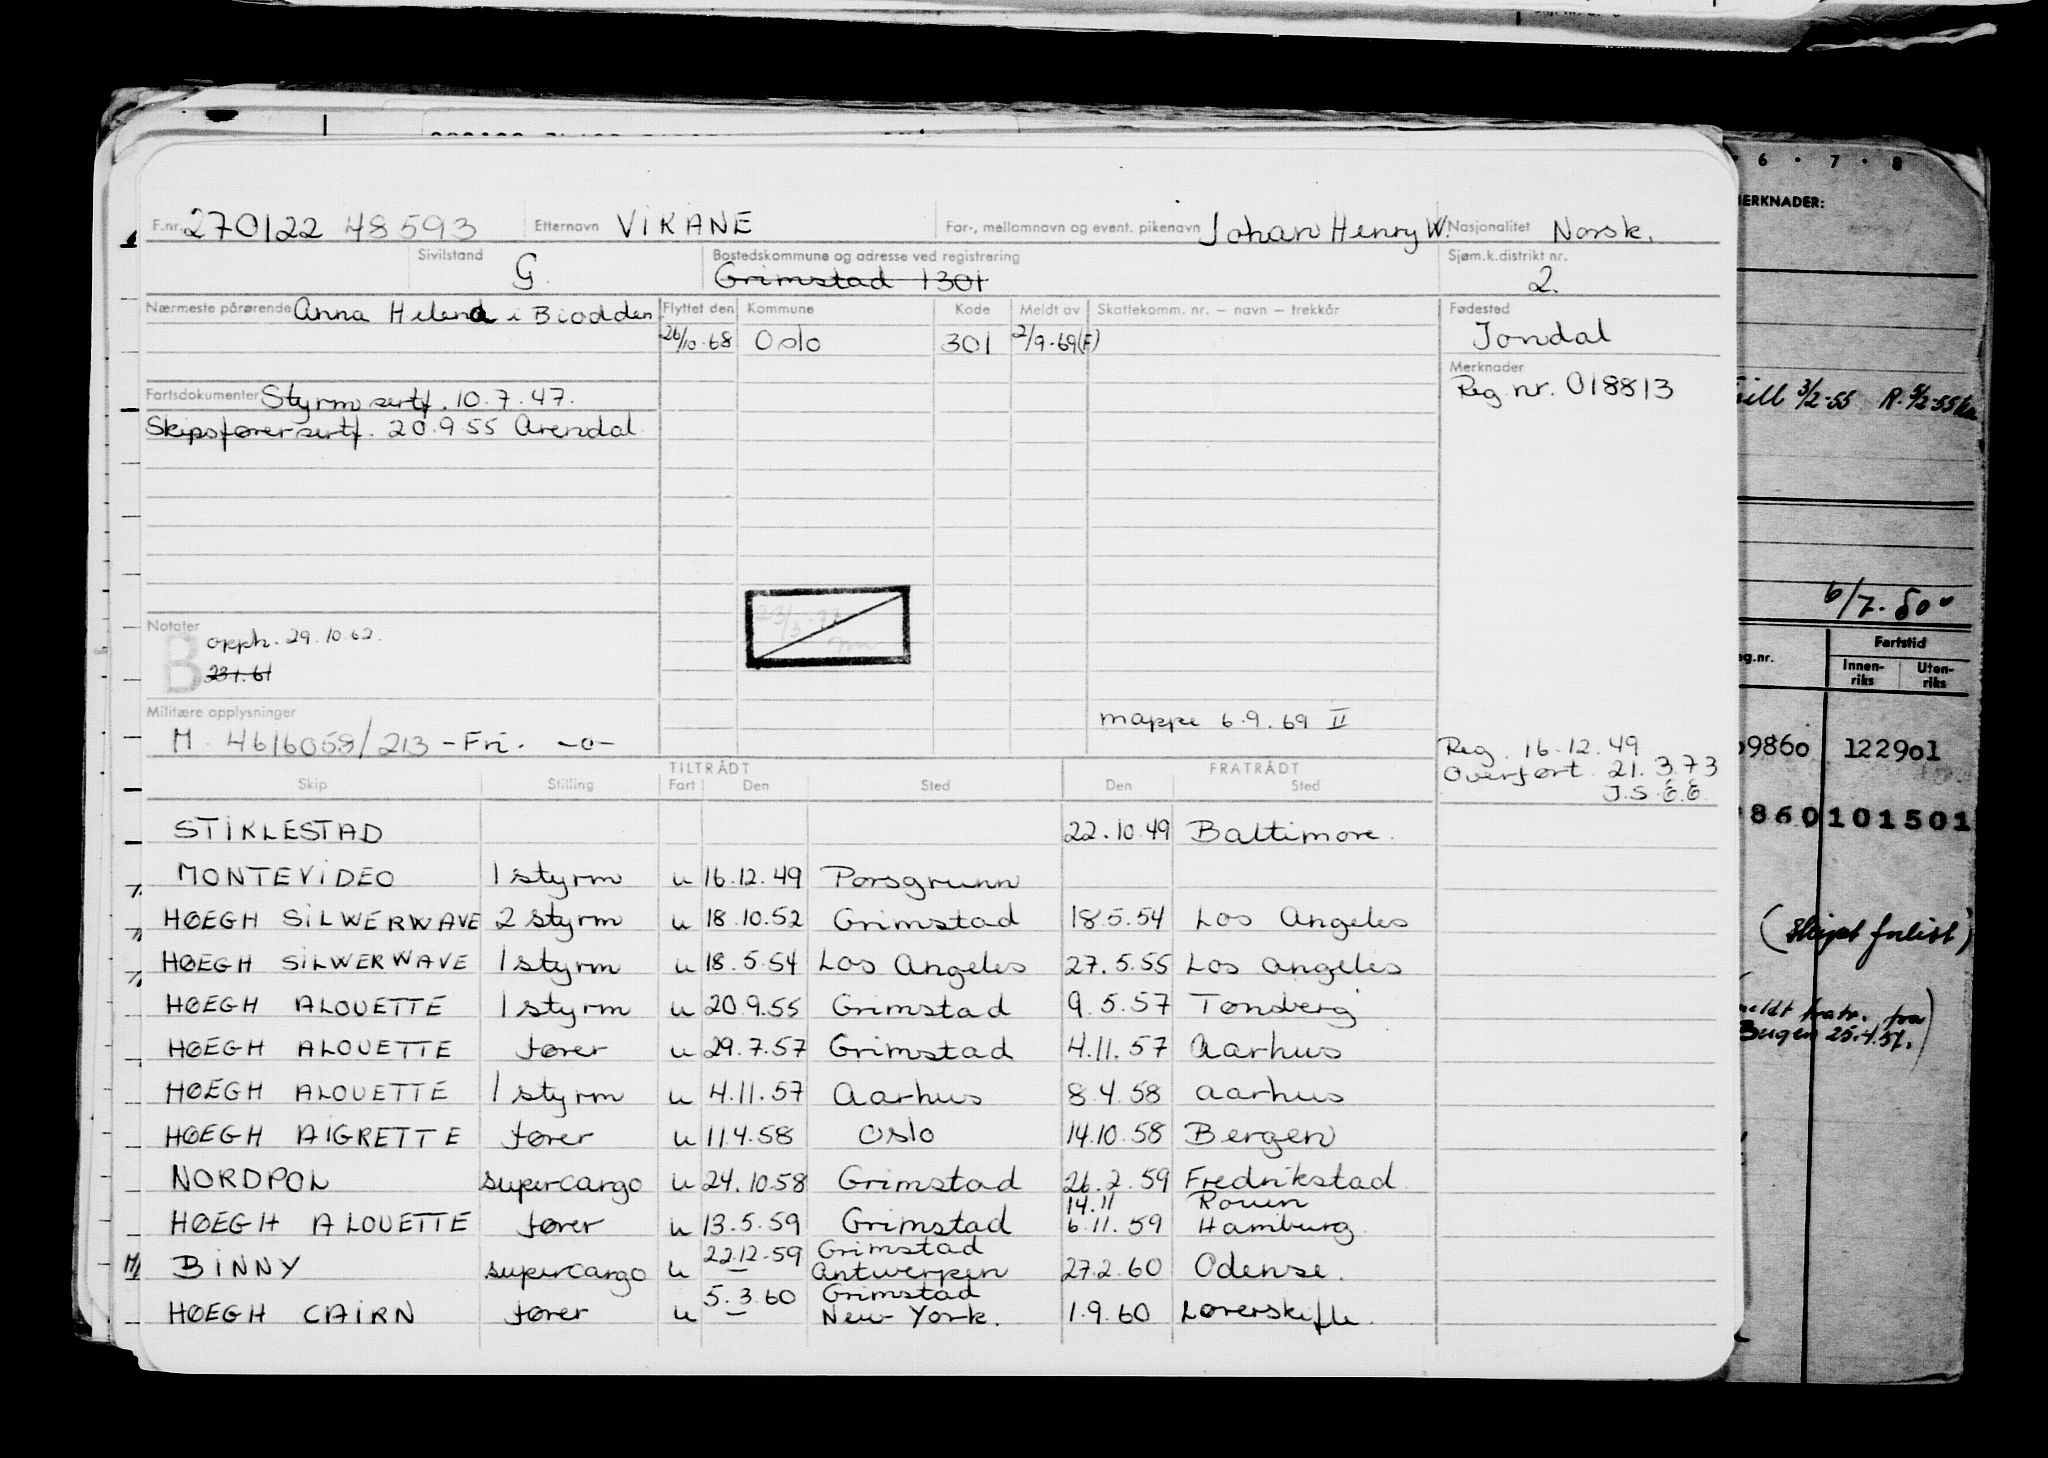 F.nr. 270122 48593 Etternavn VIKANE For-, mellomnavn og event. pikenavn Johan Henry W. Nasjonalitet Norsk.
Sivilstand G. Bostedskommune og adresse ved registrering Grimstad 1301 Sjøm.k.distrikt nr. 2.
Nærmeste pårørende Anna Helena i Biodden Flyttet den Kommune Kode Meldt av Skattekomm. nr. – navn – trekkår Fødested
26/10-68 Oslo 301 2/9-69(F) Jondal
Merknader
Fartsdokumenter Styrm sertf. 10.7.47. Reg. nr. 018813
Skipsfører sertf. 20.9.55 Arendal
Notater
B opph. 29.10.62.
231.61
Militære opplysninger mappe 6.9.69 II
M. 4616058/213 -Fri. -o- Reg. 16.12.49
Overført. 21.3.73
J.S.E.E.
TILTRÅDT FRATRÅDT
Skip Stilling Fart Den Sted Den Sted
STIKLESTAD 22.10.49 Baltimore.
MONTEVIDEO 1 styrm u 16.12.49 Porsgrunn
HØEGH SILWERWAVE 2 styrm u 18.10.52 Grimstad 18.5.54 Los Angeles
HØEGH SILWERWAVE 1 styrm u 18.5.54 Los Angeles 27.5.55 Los Angeles
HØEGH ALOUETTE 1 styrm u 20.9.55 Grimstad 9.5.57 Tønsberg
HØEGH ALOUETTE fører u 29.7.57 Grimstad 4.11.57 Aarhus
HØEGH ALOUETTE 1 styrm u 4.11.57 Aarhus 8.4.58 Aarhus
HØEGH AIGRETTE fører u 11.4.58 Oslo 14.10.58 Bergen
NORDPOL supercargo u 24.10.58 Grimstad 26.2.59 Fredrikstad
14.11 Rouen
HØEGH ALOUETTE fører u 13.5.59 Grimstad 6.11.59 Hamburg
22.12.59 Grimstad
M/ BINNY supercargo u — Antwerpen 27.2.60 Odense.
5.3.60 Grimstad
HØEGH CAIRN fører u — New York. 1.9.60
6 · 7 · 8
MERKNADER:
3/2-55
6/7-50
Fartstid
g.nr. Innen-riks Uten-riks
9860 122901
860101501
(Skipet forlist)
Bergen 25.4.51.